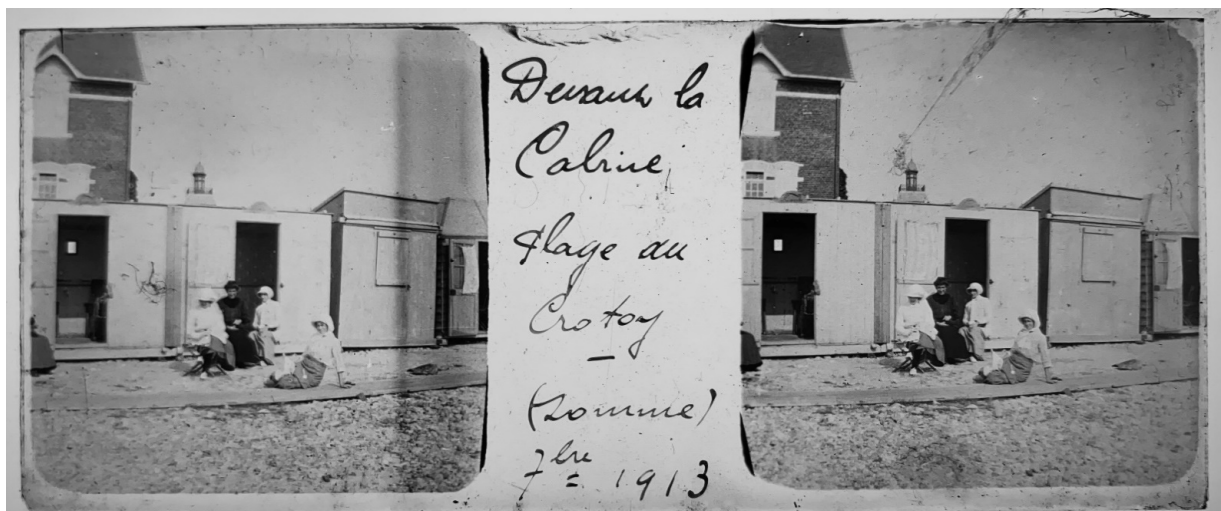 Devant la
Cabine
Plage du
Crotoy
(Somme)
7bre 1913